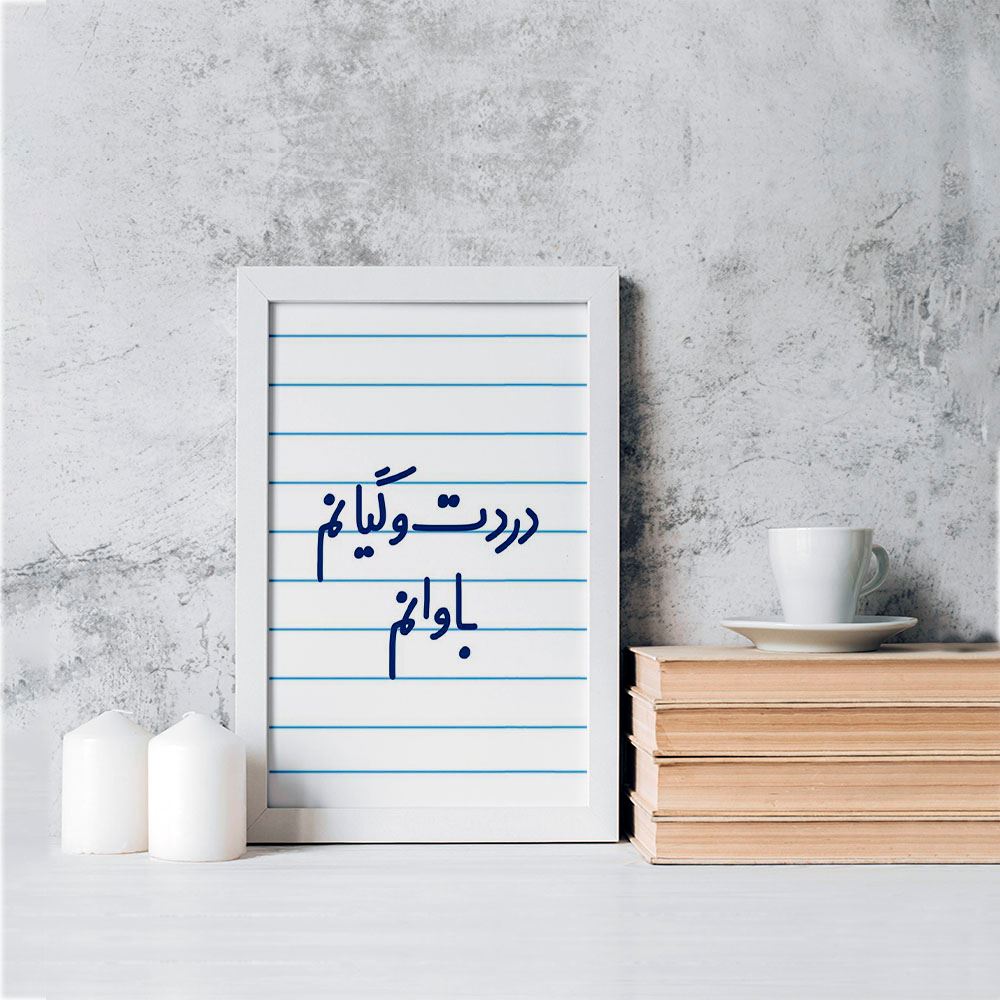 دردت وگیانم
باوانم